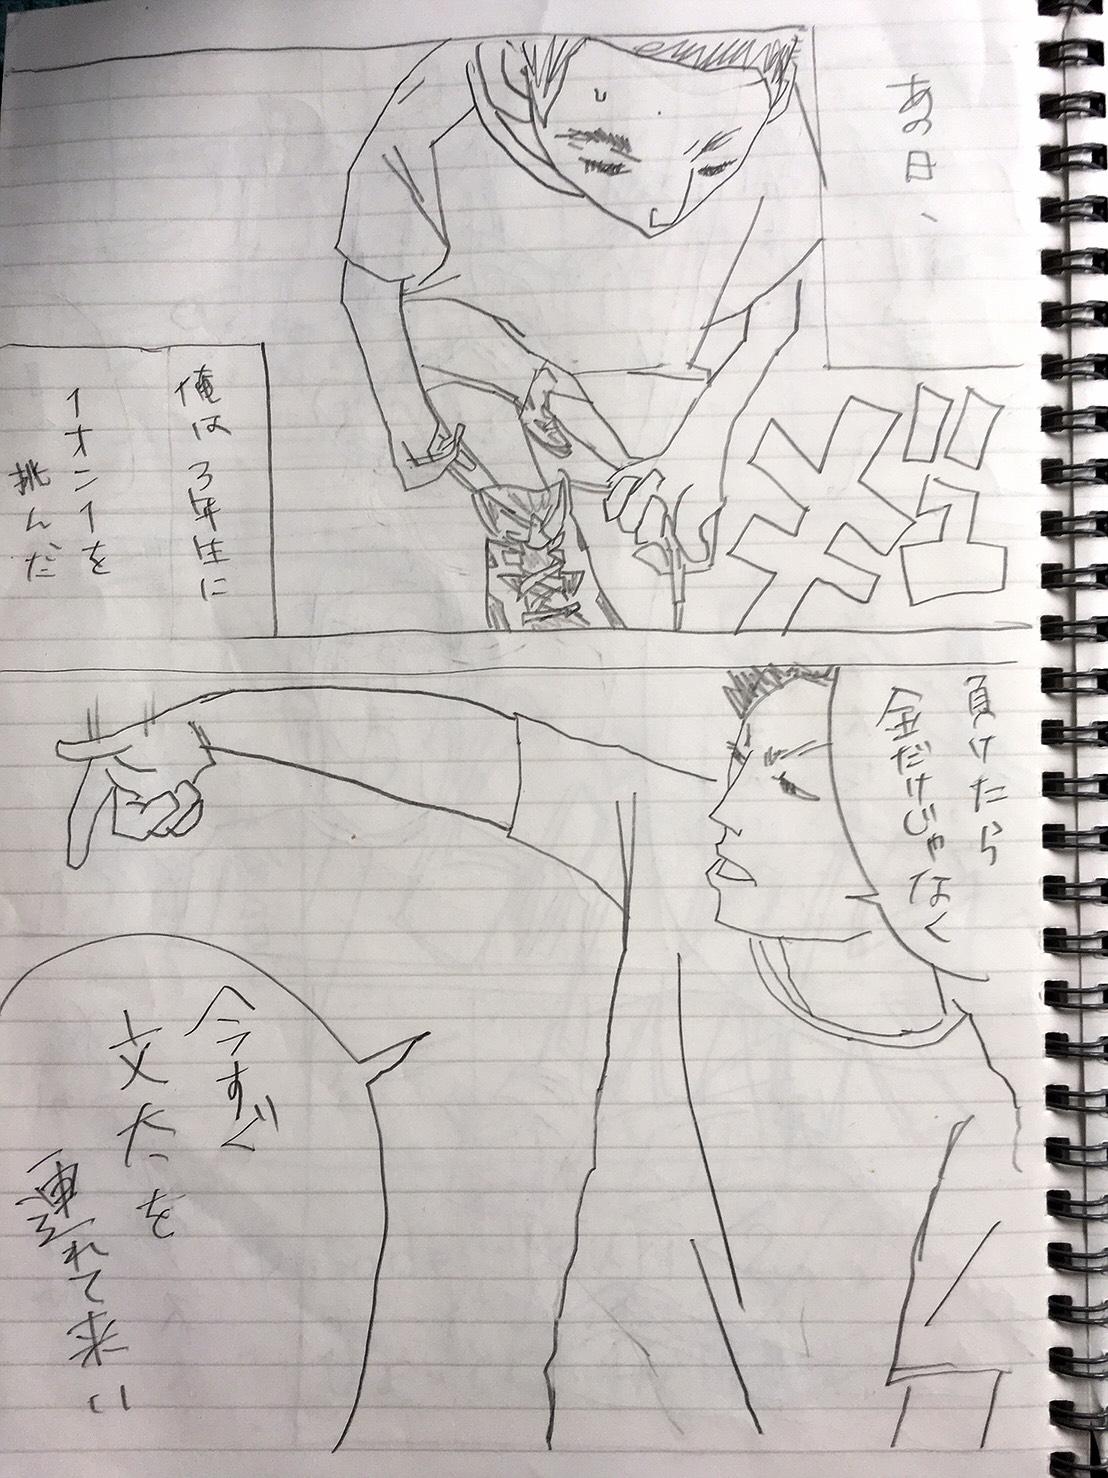 あの日、
ギュ
俺は3年生に
1オン1を
挑んだ
負けたら
金だけじゃなく
今すぐ
文太を
連れて来い